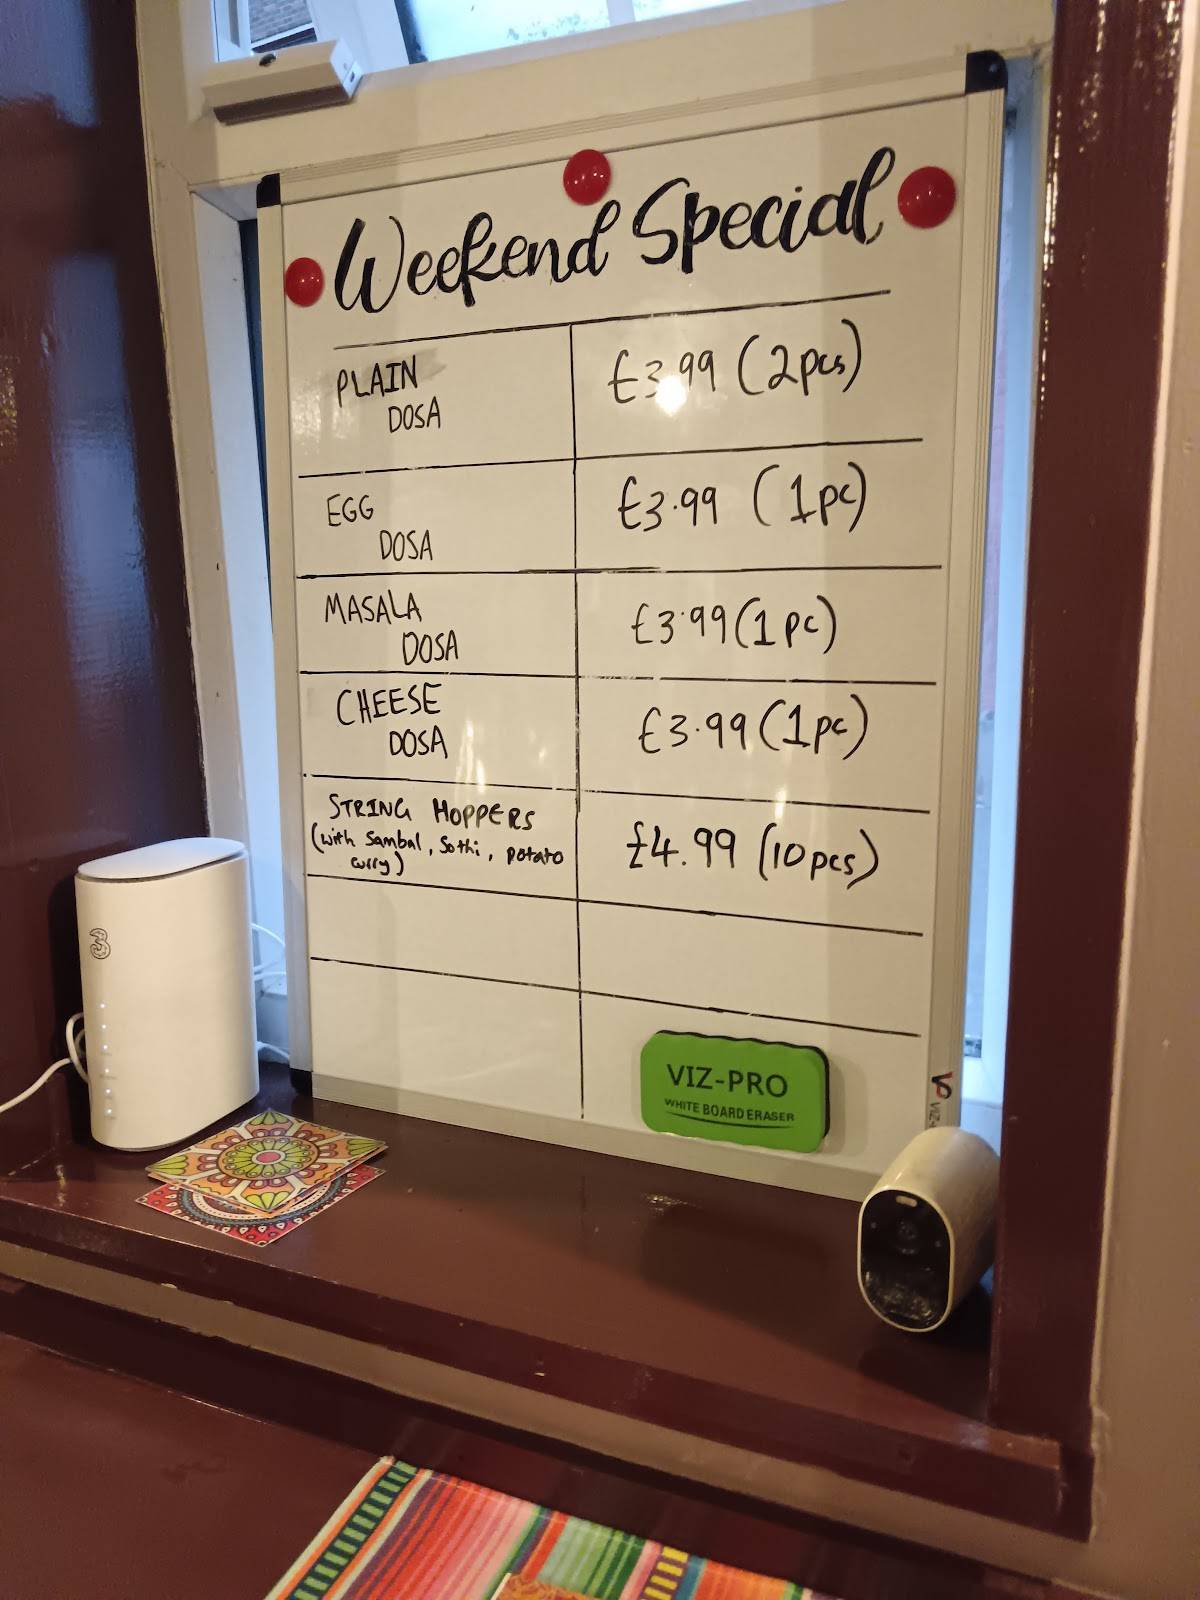 Weekend Special
PLAIN
DOSA
£3.99 (2pcs)
EGG
DOSA
£3.99 (1pc)
MASALA
DOSA
£3.99 (1pc)
CHEESE
DOSA
£3.99 (1pc)
STRING HOPPERS
(with Sambal, Sothi, potato
curry)
£4.99 (10pcs)
3
VIZ-PRO
WHITE BOARD ERASER